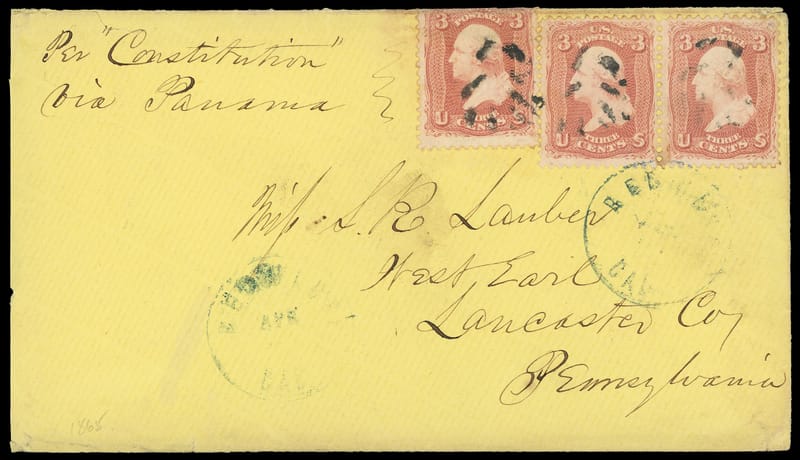 Per "Constitution"
via Panama
3 3
POSTAGE
THREE
U CENTS S
3 U.S. 3
POSTAGE
THREE
U CENTS S
3 U.S. 3
POSTAGE
THREE
U CENTS S
Miss S. R. Lauber
West Earl
Lancaster Co,
Pennsylvania
APR
CAL
1868